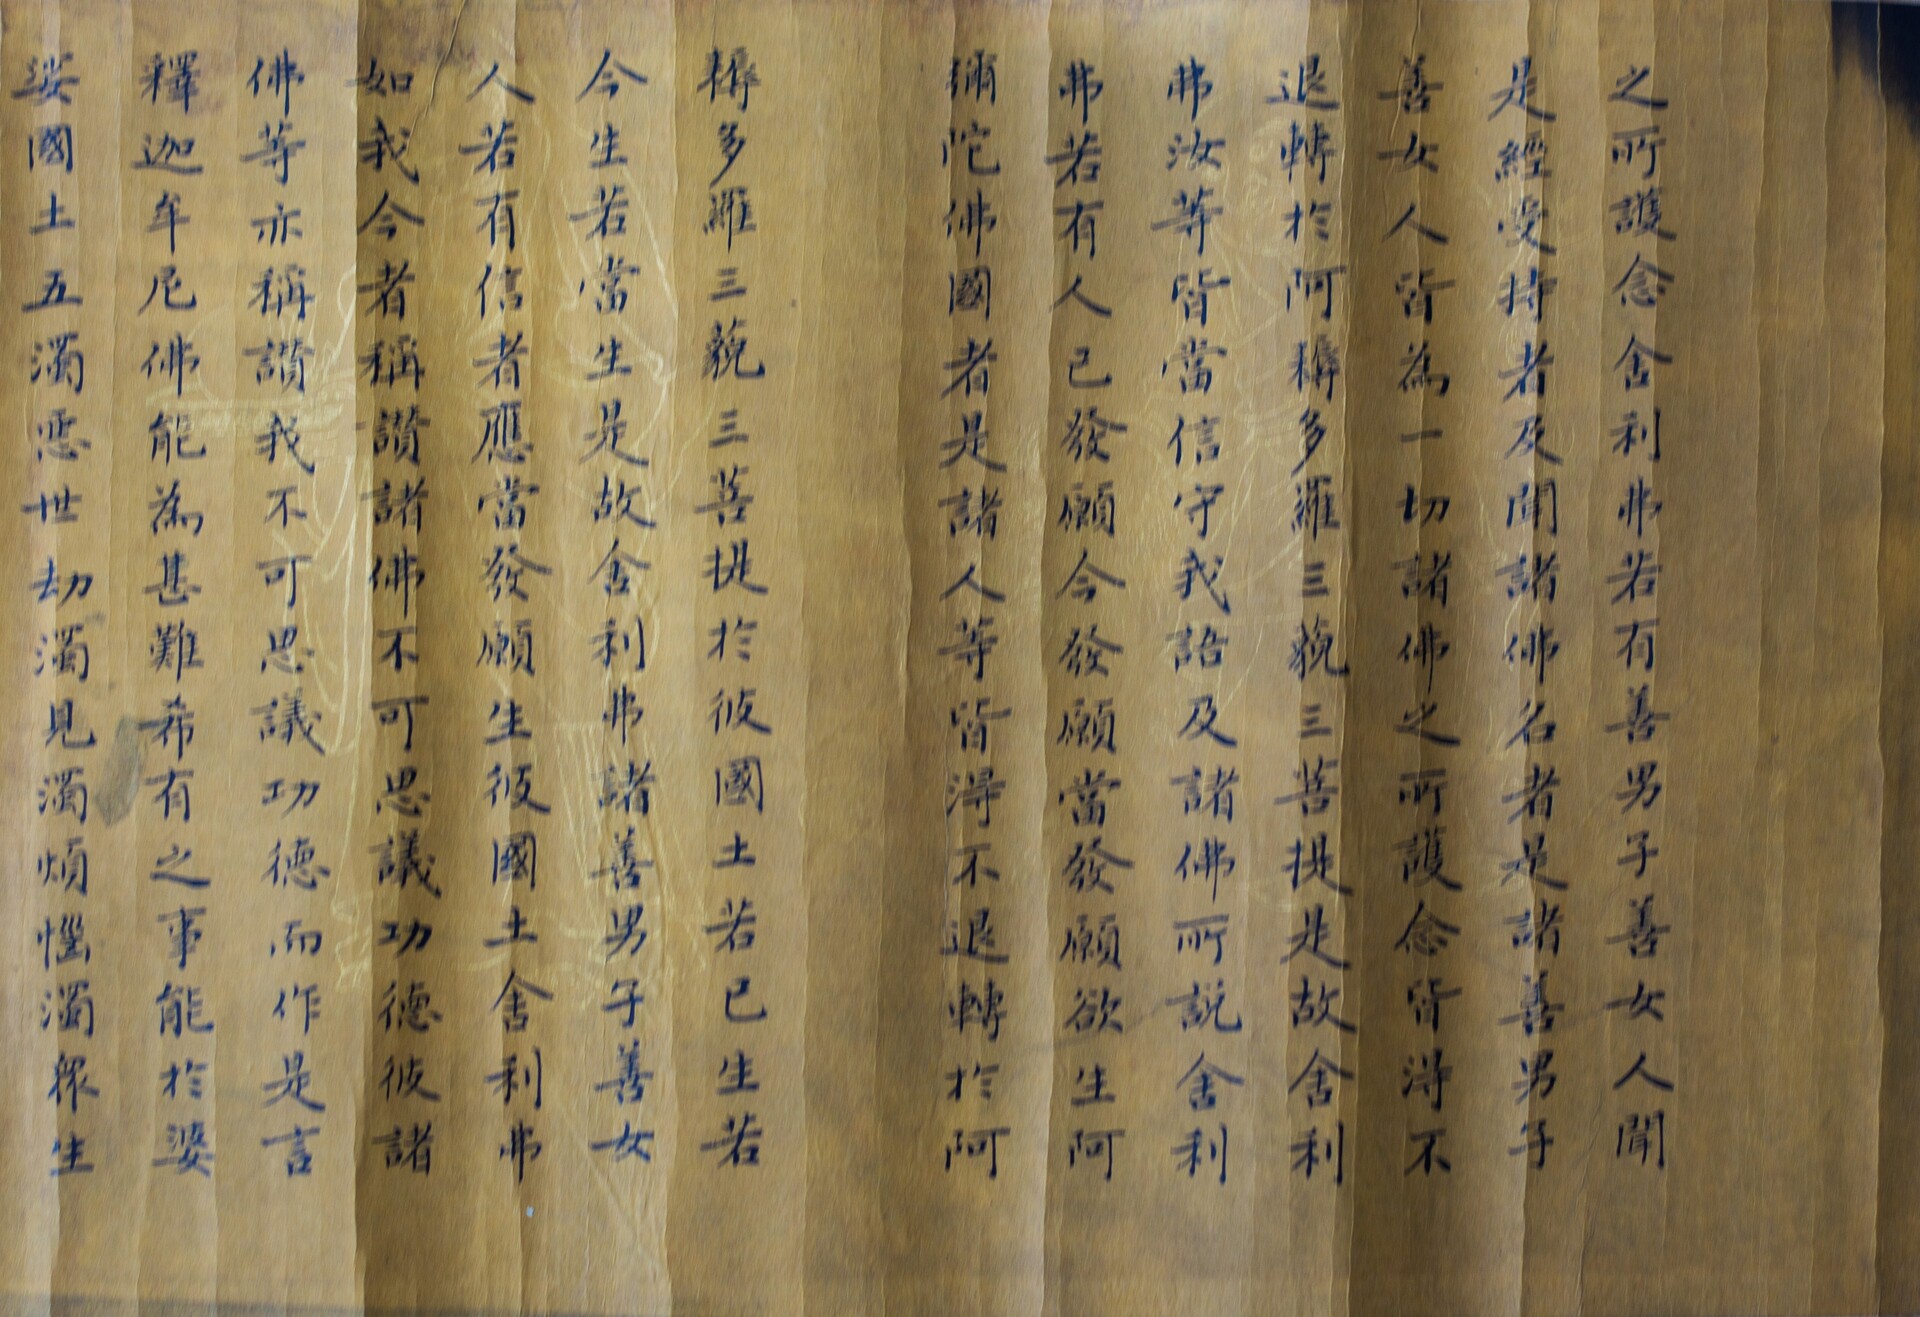 之所護念舍利弗若有善男子善女人聞
是經受持者及聞諸佛名者是諸善男子
善女人皆為一切諸佛之所護念皆得不
退轉於阿耨多羅三藐三菩提是故舍利
弗汝等皆當信守我語及諸佛所說舍利
弗若有人已發願今發願當發願欲生阿
彌陀佛國者是諸人等皆得不退轉於阿
耨多羅三藐三菩提於彼國土若已生若
今生若當生是故舍利弗諸善男子善女
人若有信者應當發願生彼國土舍利弗
如我今者稱讚諸佛不可思議功德彼諸
佛等亦稱讚我不可思議功德而作是言
釋迦牟尼佛能為甚難希有之事能於婆
娑國土五濁惡世劫濁見濁煩惱濁眾生